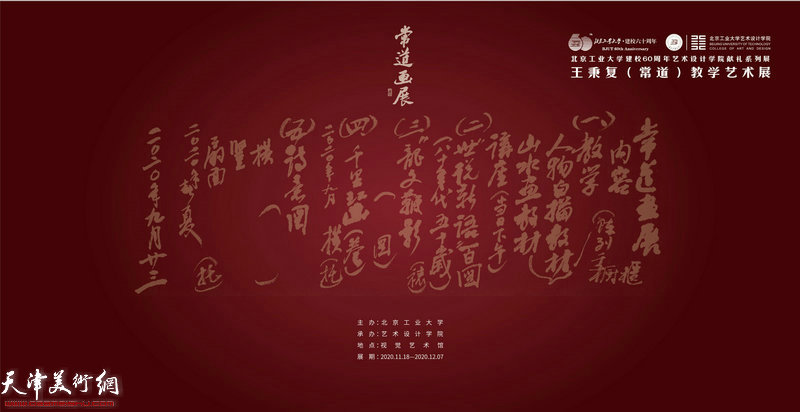 常道画展
北京工业大学·建校六十周年
BJUT 60th Anniversary
北京工业大学艺术设计学院
BEIJING UNIVERSITY OF TECHNOLOGY
COLLEGE OF ART AND DESIGN
北京工业大学建校60周年艺术设计学院献礼系列展
王秉复（常道）教学艺术展
常道画展
内容（陈列于橱柜）
（一）教学
人物白描教材
山水画教材
讲座（当日下午）
（二）“世说新语”百图
（八十年代五十载）
（三）“龙文鞭影”（裱）
（图）
（四）千里江山（卷）
二〇二〇年九月 横（托）
（五）诗意图
横（
竖 ）
扇面
二〇二〇年初夏（托）
二〇二〇年九月廿三
主办：北京工业大学
承办：艺术设计学院
地点：视觉艺术馆
展期：2020.11.18—2020.12.07
天津美術網